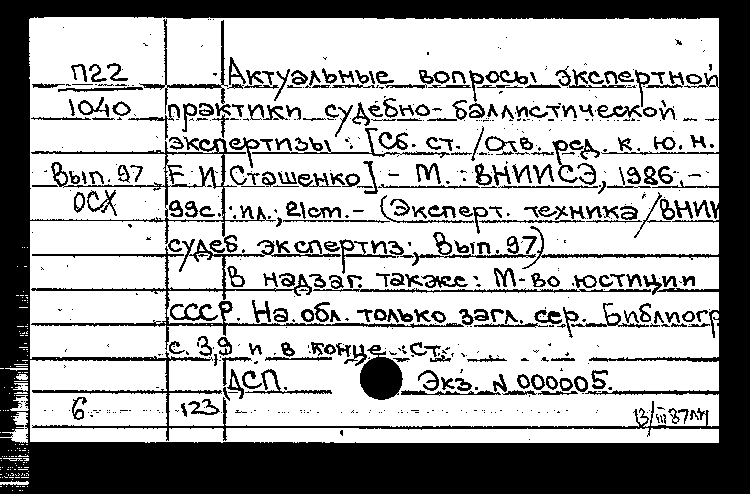 П22 Актуальные вопросы экспертной
1040 практики судебно-баллистической
экспертизы : [Сб. ст. / Отв. ред. к. ю. н.
Вып. 97 Е И Сташенко]. - М. : ВНИИСЭ, 1986. -
ОСХ 99с. : ил.; 21см. - (Эксперт. техника / ВНИИ
судеб. экспертиз; Вып. 97)
В надзаг. также: М-во юстиции
СССР. На обл. только загл. сер. Библиогр
с. 3,9 и в конце ст.
ДСП. Экз. N 000005.
6. 123 13/III 87